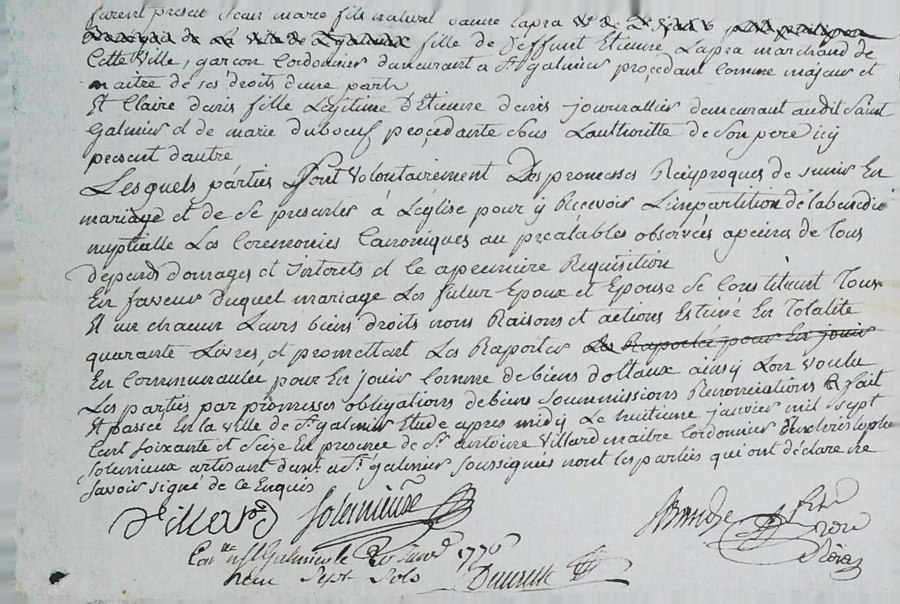 furent present Jean marie fils naturel Janne Lapra
de La ville de St galmier fille de Deffunt Etienne Lapra marchand de
Cette Ville, garçon Cordonnier demeurant a St galmier procedant Comme majeur et
maitre de ses droits d'une part
Et Claire denis fille Legitime d'Etienne denis journallier demeurant audit Saint
Galmier et de marie duboeuf proçedante sous L'authoritte de son pere icy
present d'autre
Lesquels parties sont volontairement Des promesses Reciproques de sunir En
mariage et de Se presenter à L'église pour y Recevoir L'impartition de la benedion
nuptialle Les Ceremonies Canoniques au préalables observées a peine de tous
depends domages et Intorets et le a premiere Requisition
En faveur duquel mariage Les futur Epoux et Epouse Se Constituent Tous
Et un chacun Leurs biens droits noms Raisons et actions Estimé En Totalité
quarante Livres, et promettant Les Raporter Les Raporter pour En jouir
En Communautée pour En jouir Comme de biens dottaux ainsy L'on voulu
Les parties par promesses obligations de biens Soummissions Renonciations & fait
Et passé En la ville de St galmier Etude apres midy Le huitieme janvier mil sept
Cent soixante et Seize En presence de Sr antoine Villard maitre Cordonnier et
Solemieux artisant dem. ad. St galmier Soussignés non les parties qui ont déclaré ne
Savoir signé de Ce Enquis
Villard Solemieux
Con.lle à St Galmier le 20 janv. 1776
Reçu Sept Sols